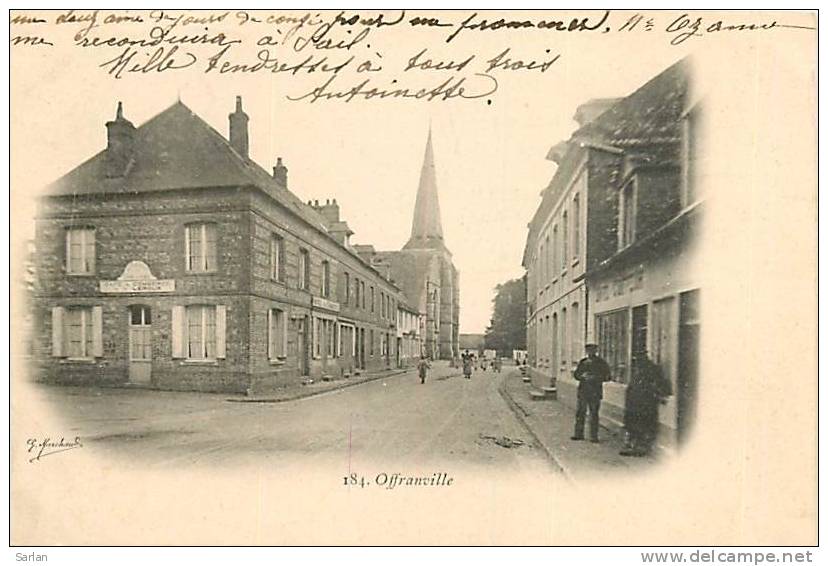 me deux ame de jours de congé pour me promener, Mr Ozanne
me reconduira à Sail.
Mille tendresses à tous trois
Antoinette
CAFE DU COMMERCE
LEROUX
G. Marchand
184. Offranville
Sarlan
http://www.delcampe.net